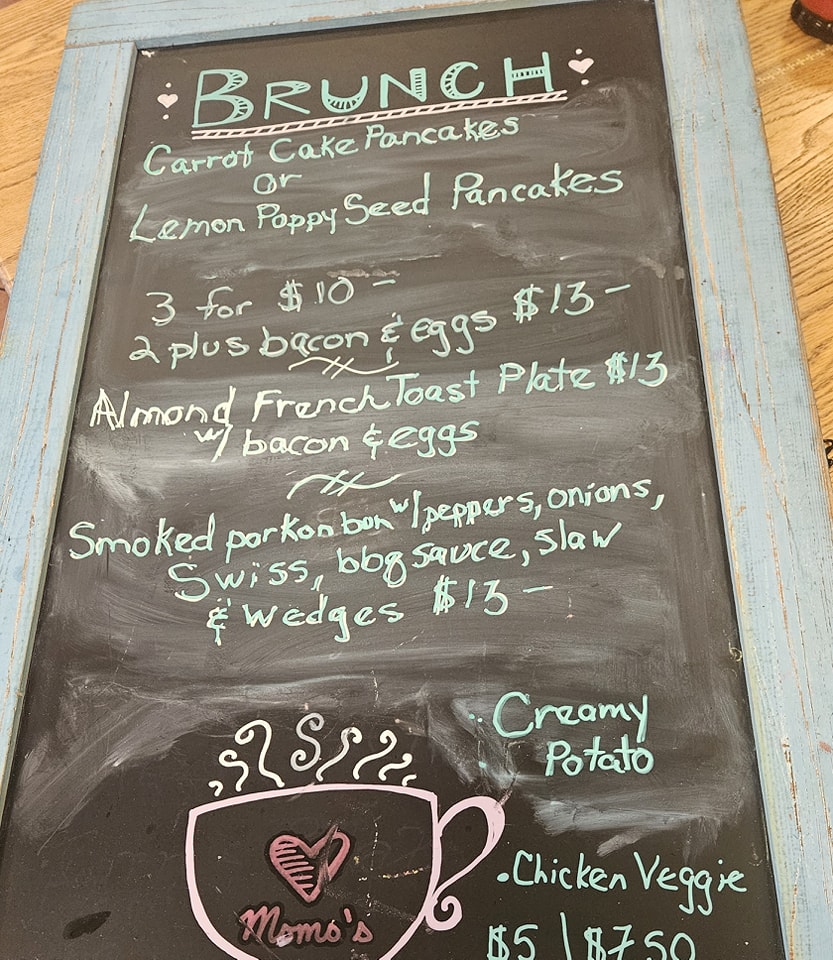 BRUNCH
Carrot Cake Pancakes
or
Lemon Poppy Seed Pancakes
3 for $10 –
2 plus bacon & eggs $13 –
Almond French Toast Plate $13
w/ bacon & eggs
Smoked pork on bun w/ peppers, onions,
Swiss, bbq sauce, slaw
& wedges $13 –
Creamy
Potato
• Chicken Veggie
$5 | $7.50
Momo's